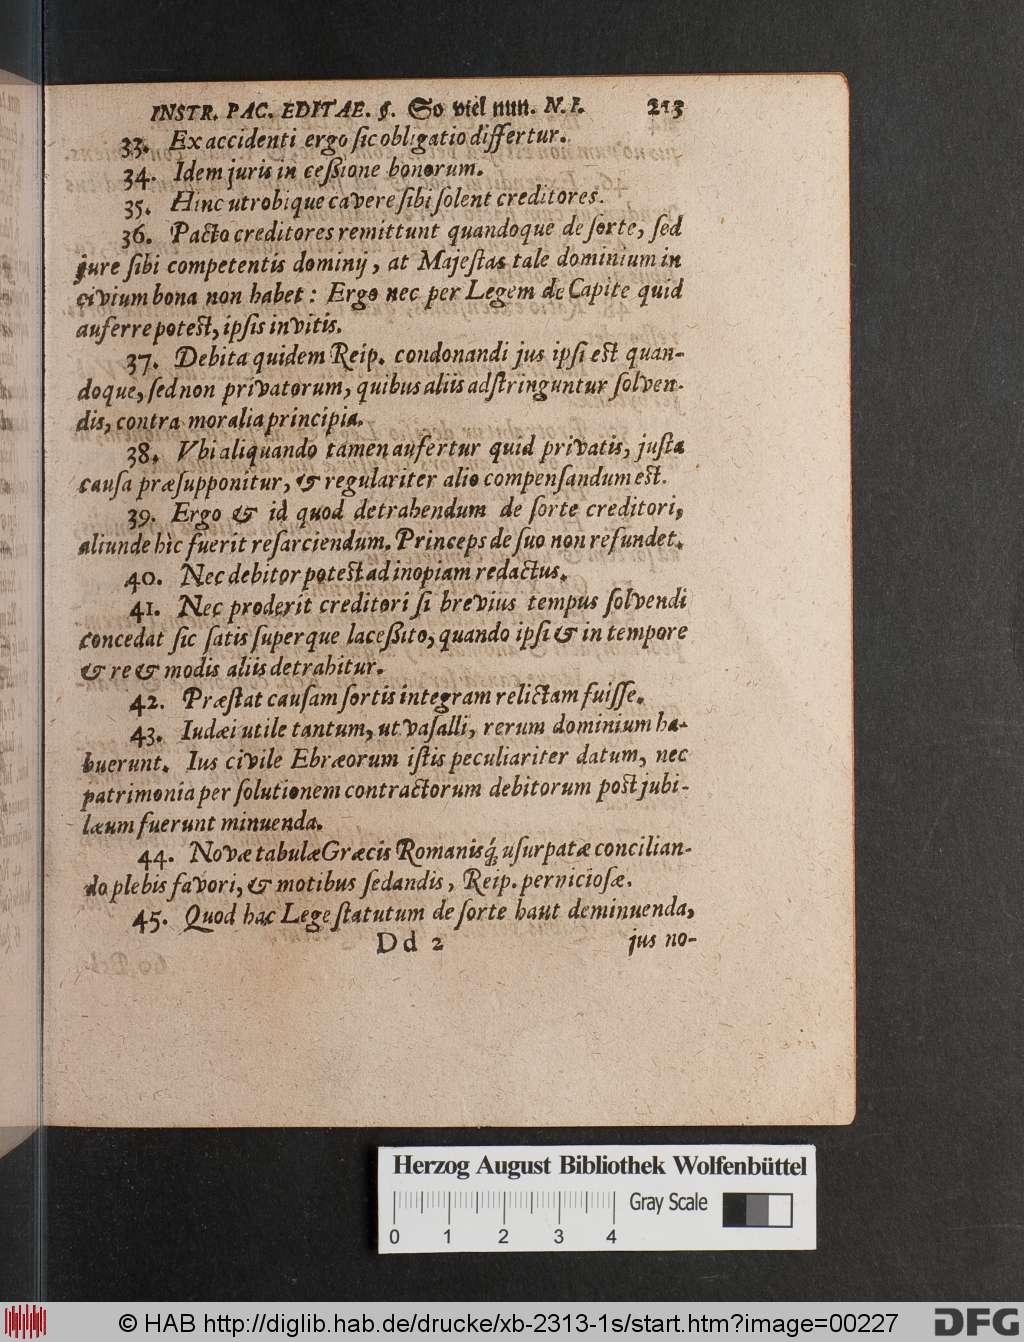 INSTR. PAC. EDITAE. §. So viel nun. N. I. 213
33. Ex accidenti ergo ſic obligatio differtur.
34. Idem juris in ceßione bonorum.
35. Hinc utrobique cavere ſibi ſolent creditores.
36. Pacto creditores remittunt quandoque de ſorte, ſed
jure ſibi competentis dominij, at Majeſtas tale dominium in
civium bona non habet: Ergo nec per Legem de Capite quid
auferre poteſt, ipſis invitis.
37. Debita quidem Reip. condonandi jus ipſi eſt quan-
doque, ſed non privatorum, quibus aliis adſtringuntur ſolven-
dis, contra moralia principia.
38. Vbi aliquando tamen aufertur quid privatis, juſta
cauſa præſupponitur, & regulariter alio compenſandum eſt.
39. Ergo & id quod detrahendum de ſorte creditori,
aliunde hìc fuerit reſarciendum. Princeps de ſuo non refundet.
40. Nec debitor poteſt ad inopiam redactus.
41. Nec proderit creditori ſi brevius tempus ſolvendi
concedat ſic ſatis ſuperque laceßito, quando ipſi & in tempore
& re & modis aliis detrahitur.
42. Præſtat cauſam ſortis integram relictam fuiſſe.
43. Iudæi utile tantum, ut vaſalli, rerum dominium ha-
buerunt. Ius civile Ebræorum iſtis peculiariter datum, nec
patrimonia per ſolutionem contractorum debitorum poſt jubi-
læum fuerunt minuenda.
44. Novæ tabulæ Græcis Romanisq́; uſurpatæ concilian-
do plebis favori, & motibus ſedandis, Reip. pernicioſæ.
45. Quod hac Lege ſtatutum de ſorte haut deminuenda,
D d 2 jus no-
Herzog August Bibliothek Wolfenbüttel
Gray Scale
0 1 2 3 4
© HAB http://diglib.hab.de/drucke/xb-2313-1s/start.htm?image=00227
DFG